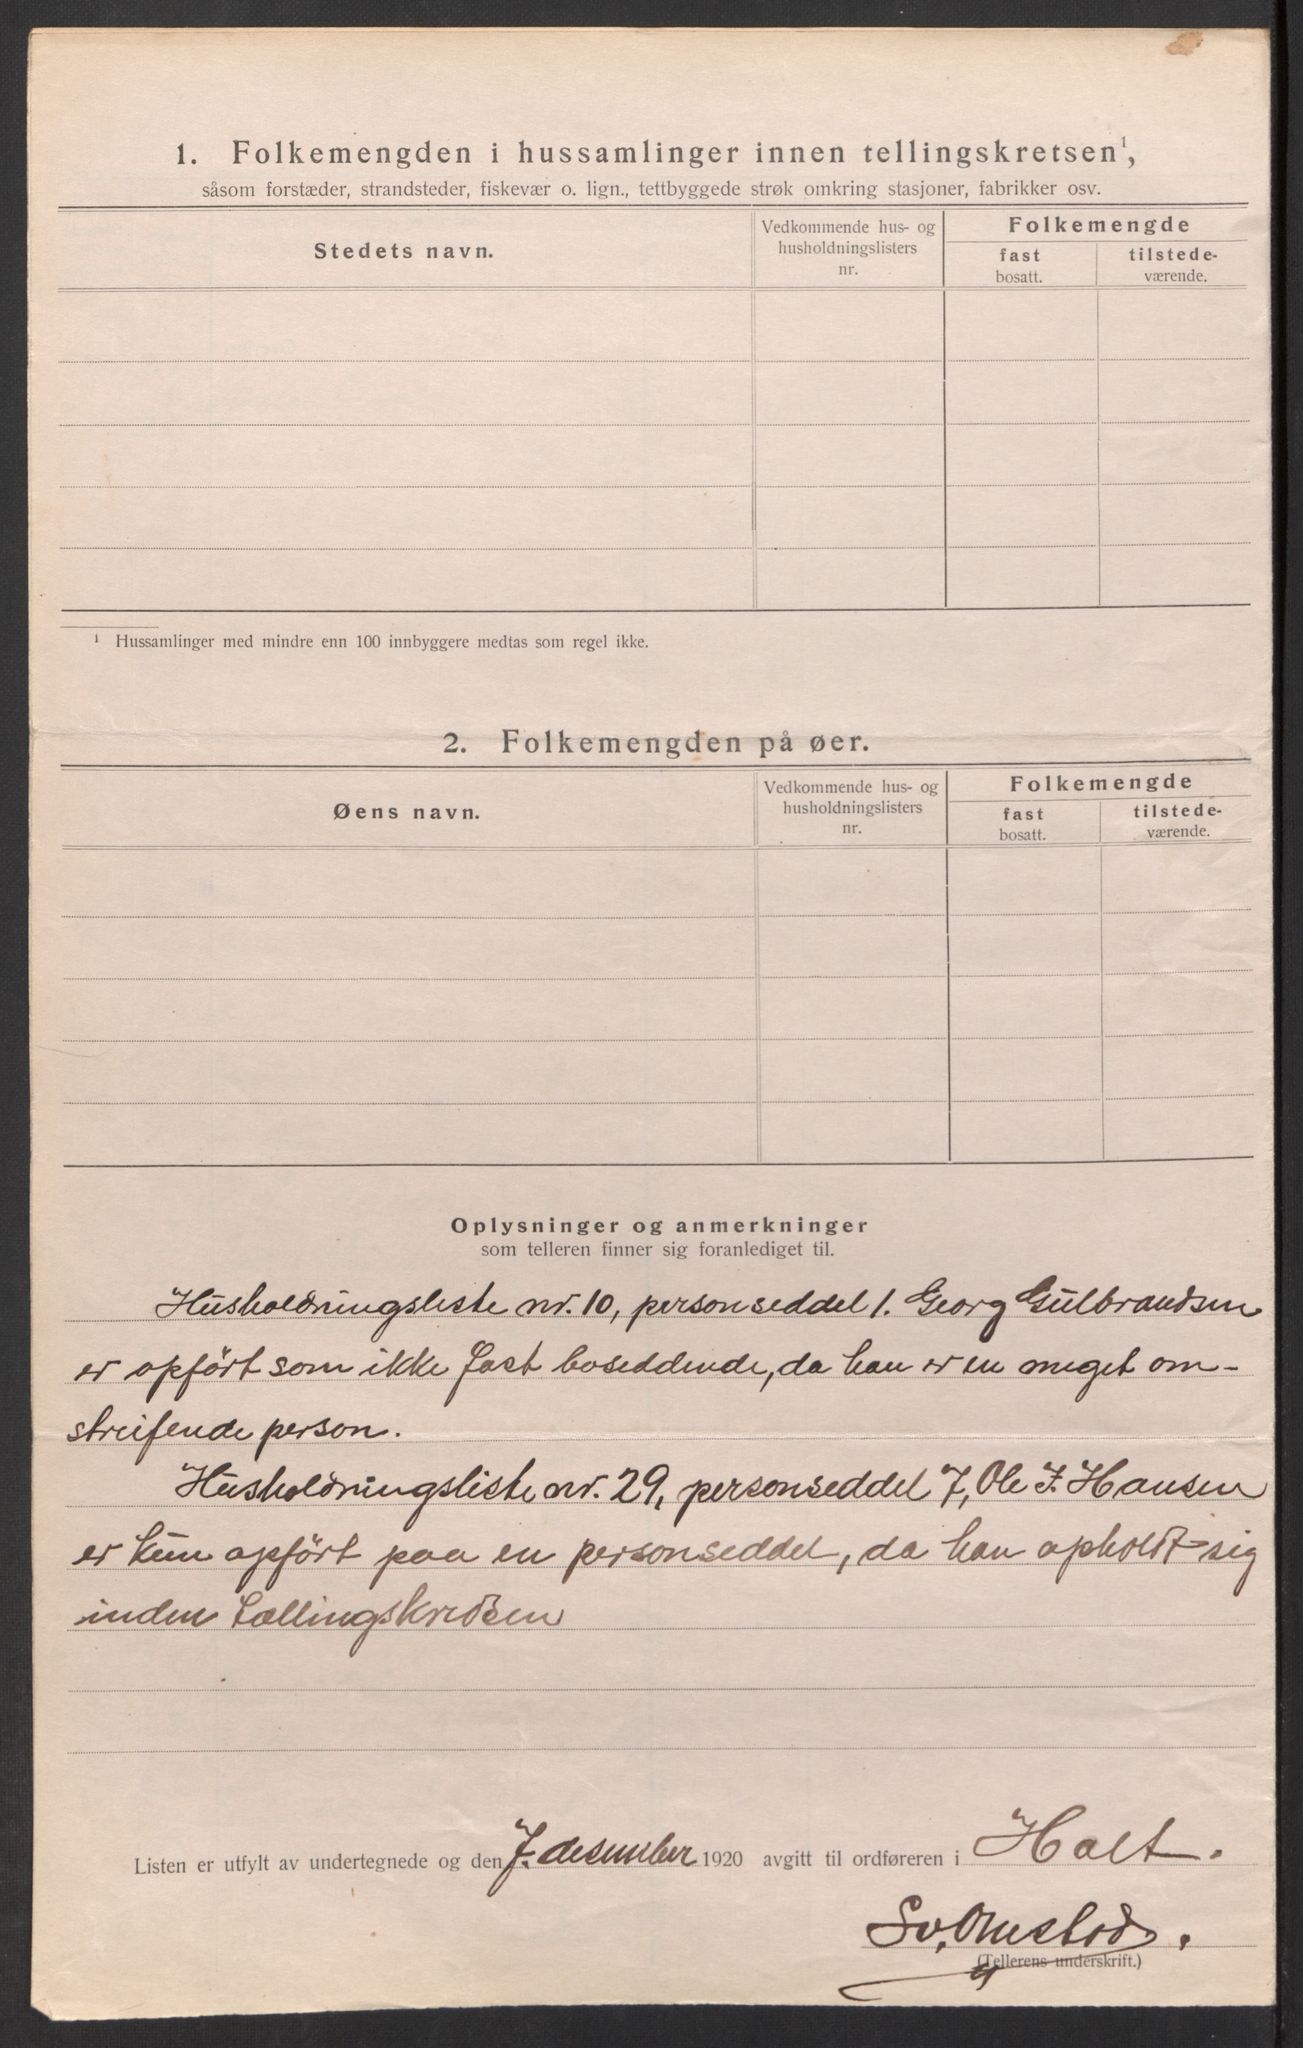 1. Folkemengden i hussamlinger innen tellingskretsen¹,
såsom forstæder, strandsteder, fiskevær o. lign., tettbyggede strøk omkring stasjoner, fabrikker osv.
Stedets navn.
Vedkommende hus- og
husholdningslisters
nr.
Folkemengde
fast
bosatt.
tilstede-
værende.
¹ Hussamlinger med mindre enn 100 innbyggere medtas som regel ikke.
2. Folkemengden på øer.
Øens navn.
Vedkommende hus- og
husholdningslisters
nr.
Folkemengde
fast
bosatt.
tilstede-
værende.
Oplysninger og anmerkninger
som telleren finner sig foranlediget til.
Husholdningsliste nr. 10, personseddel 1. Georg Gulbrandsen
er opført som ikke fast boseddende, da han er en meget om-
streifende person.
Husholdningsliste nr. 29, personseddel 7, Ole F. Hansen
er kun opført paa en personseddel, da han opholdt sig
inden tællingskredsen
Listen er utfylt av undertegnede og den 7. desember 1920 avgitt til ordføreren i Holt.
Sv. Omstod.
(Tellerens underskrift.)